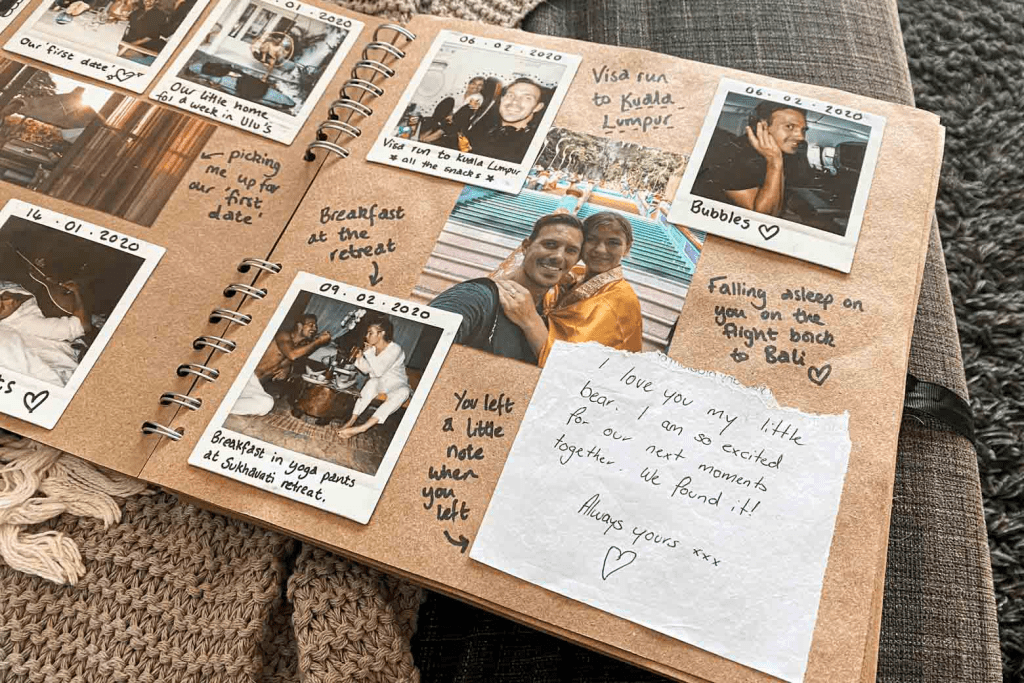 Our first date' ♡
01 · 2020
Our little home
for a week in Ulu's
← picking
me up for
our 'first
date'
14 · 01 · 2020
♡
06 · 02 · 2020
Visa run to Kuala Lumpur
* all the snacks *
Visa run
to Kuala
Lumpur
06 · 02 · 2020
Bubbles ♡
Breakfast
at the
retreat
↓
09 · 02 · 2020
Breakfast in yoga pants
at Sukhavati retreat.
Falling asleep on
you on the
flight back
to Bali
♡
You left
a little
note
when
you
left
→
I love you my little
bear. I am so excited
for our next moments
together. We found it!
Always yours xxx
♡